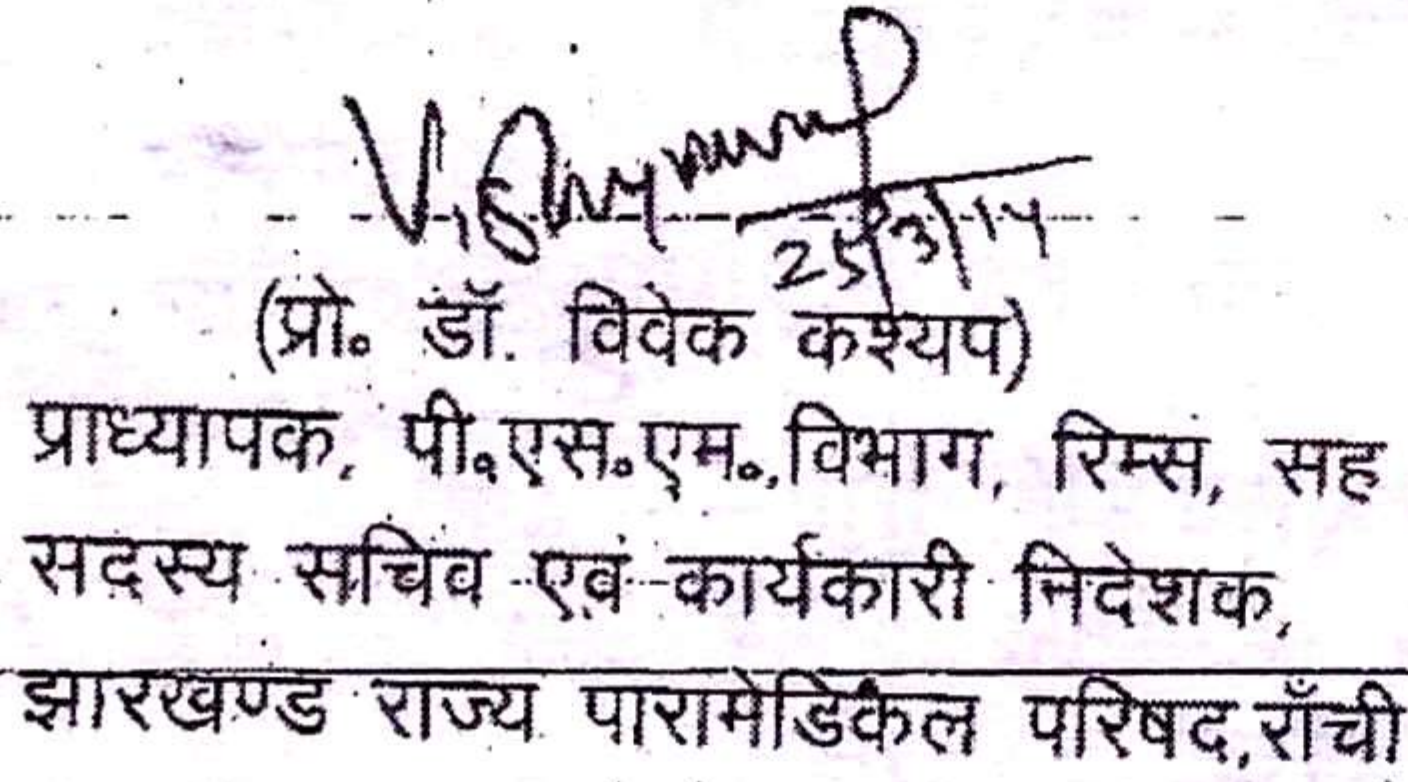 25/3/14
(प्रो० डॉ. विवेक कश्यप)
प्राध्यापक, पी०एस०एम०, विभाग, रिम्स, सह
सदस्य सचिव एवं कार्यकारी निदेशक,
झारखण्ड राज्य पारामेडिकल परिषद,राँची